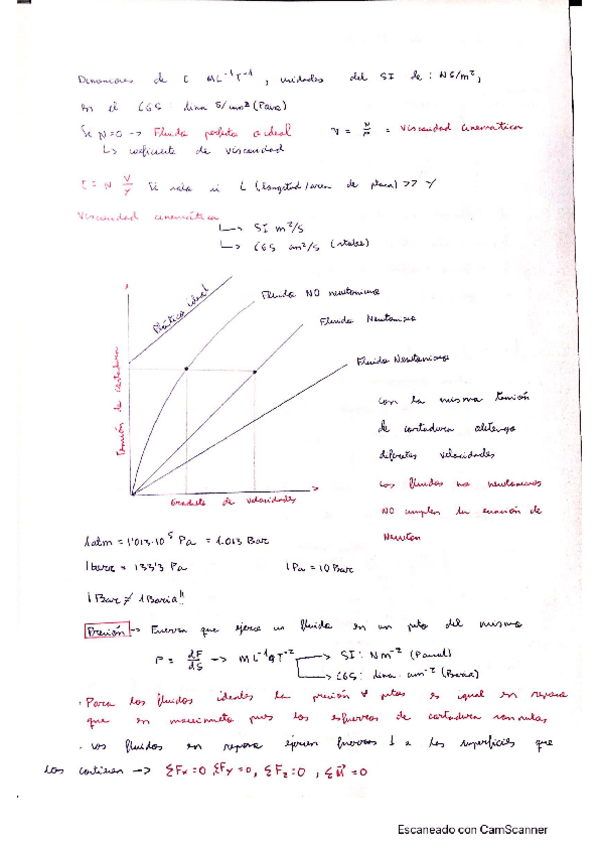 Dimensiones de τ ML⁻¹T⁻¹, unidades del SI de: NS/m²,
en el CGS: dina S/cm² (Poise)
Si N=0 -> Fluido perfecto o ideal V = = Viscosidad cinemática
↳ coeficiente de viscosidad
τ = N V/Y Si vale si L (longitud/area de placa) >> Y
Viscosidad cinemática
↳ SI m²/S
↳ CGS cm²/S (stokes)
Plástico ideal
Fluido NO newtoniano
Fluido Newtoniano
Fluido Newtoniano
Tensión de cortadura
Gradiente de velocidades
con la misma tensión
de cortadura obtengo
diferentes velocidades
Los fluidos no newtonianos
NO cumplen la ecuación de
Newton
1atm = 1'013·10⁵ Pa = 1.013 Bar
1 = 133'3 Pa 1Pa = 10 Bar
¡1Bar ≠ 1Baria!!
Presión -> Fuerza que ejerce un fluido en un pto del mismo
P = dF/dS -> ML⁻¹T⁻² -> SI: Nm⁻² (Pascal)
-> CGS: dina·cm⁻² (Baria)
· Para los fluidos ideales la presión ∀ ptos es igual en reposo
que en movimiento pues los esfuerzos de cortadura son nulos
· Los fluidos en reposo ejercen fuerzas ⊥ a las superficies que
los contienen -> ΣFx=0, ΣFy=0, ΣFz=0, ΣM⃗=0
Escaneado con CamScanner